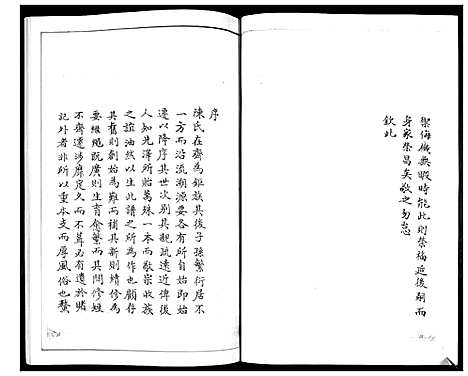 禦侮廣無暇時能此則榮福延後嗣而
身家榮昌矣敬之勿怠
欽此
序
陳氏在齊為鉅族其後子孫繁衍居不
一方而沿流溯源要各有所自即始
遷以降序其世次別其親疏遠近俾後
人知先澤所貽萬殊一本而敬宗收族
之誼油然以生此譜之所為作也顧存
其舊則創始為難而補其新則續修為
要雖繩既廣則生育愈繁而其間修短
不齊遷涉靡定久而不葺必有遺於賭
記外者非所以重本支而厚風俗也蟄